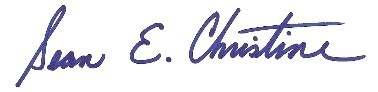 Sean E. Christine